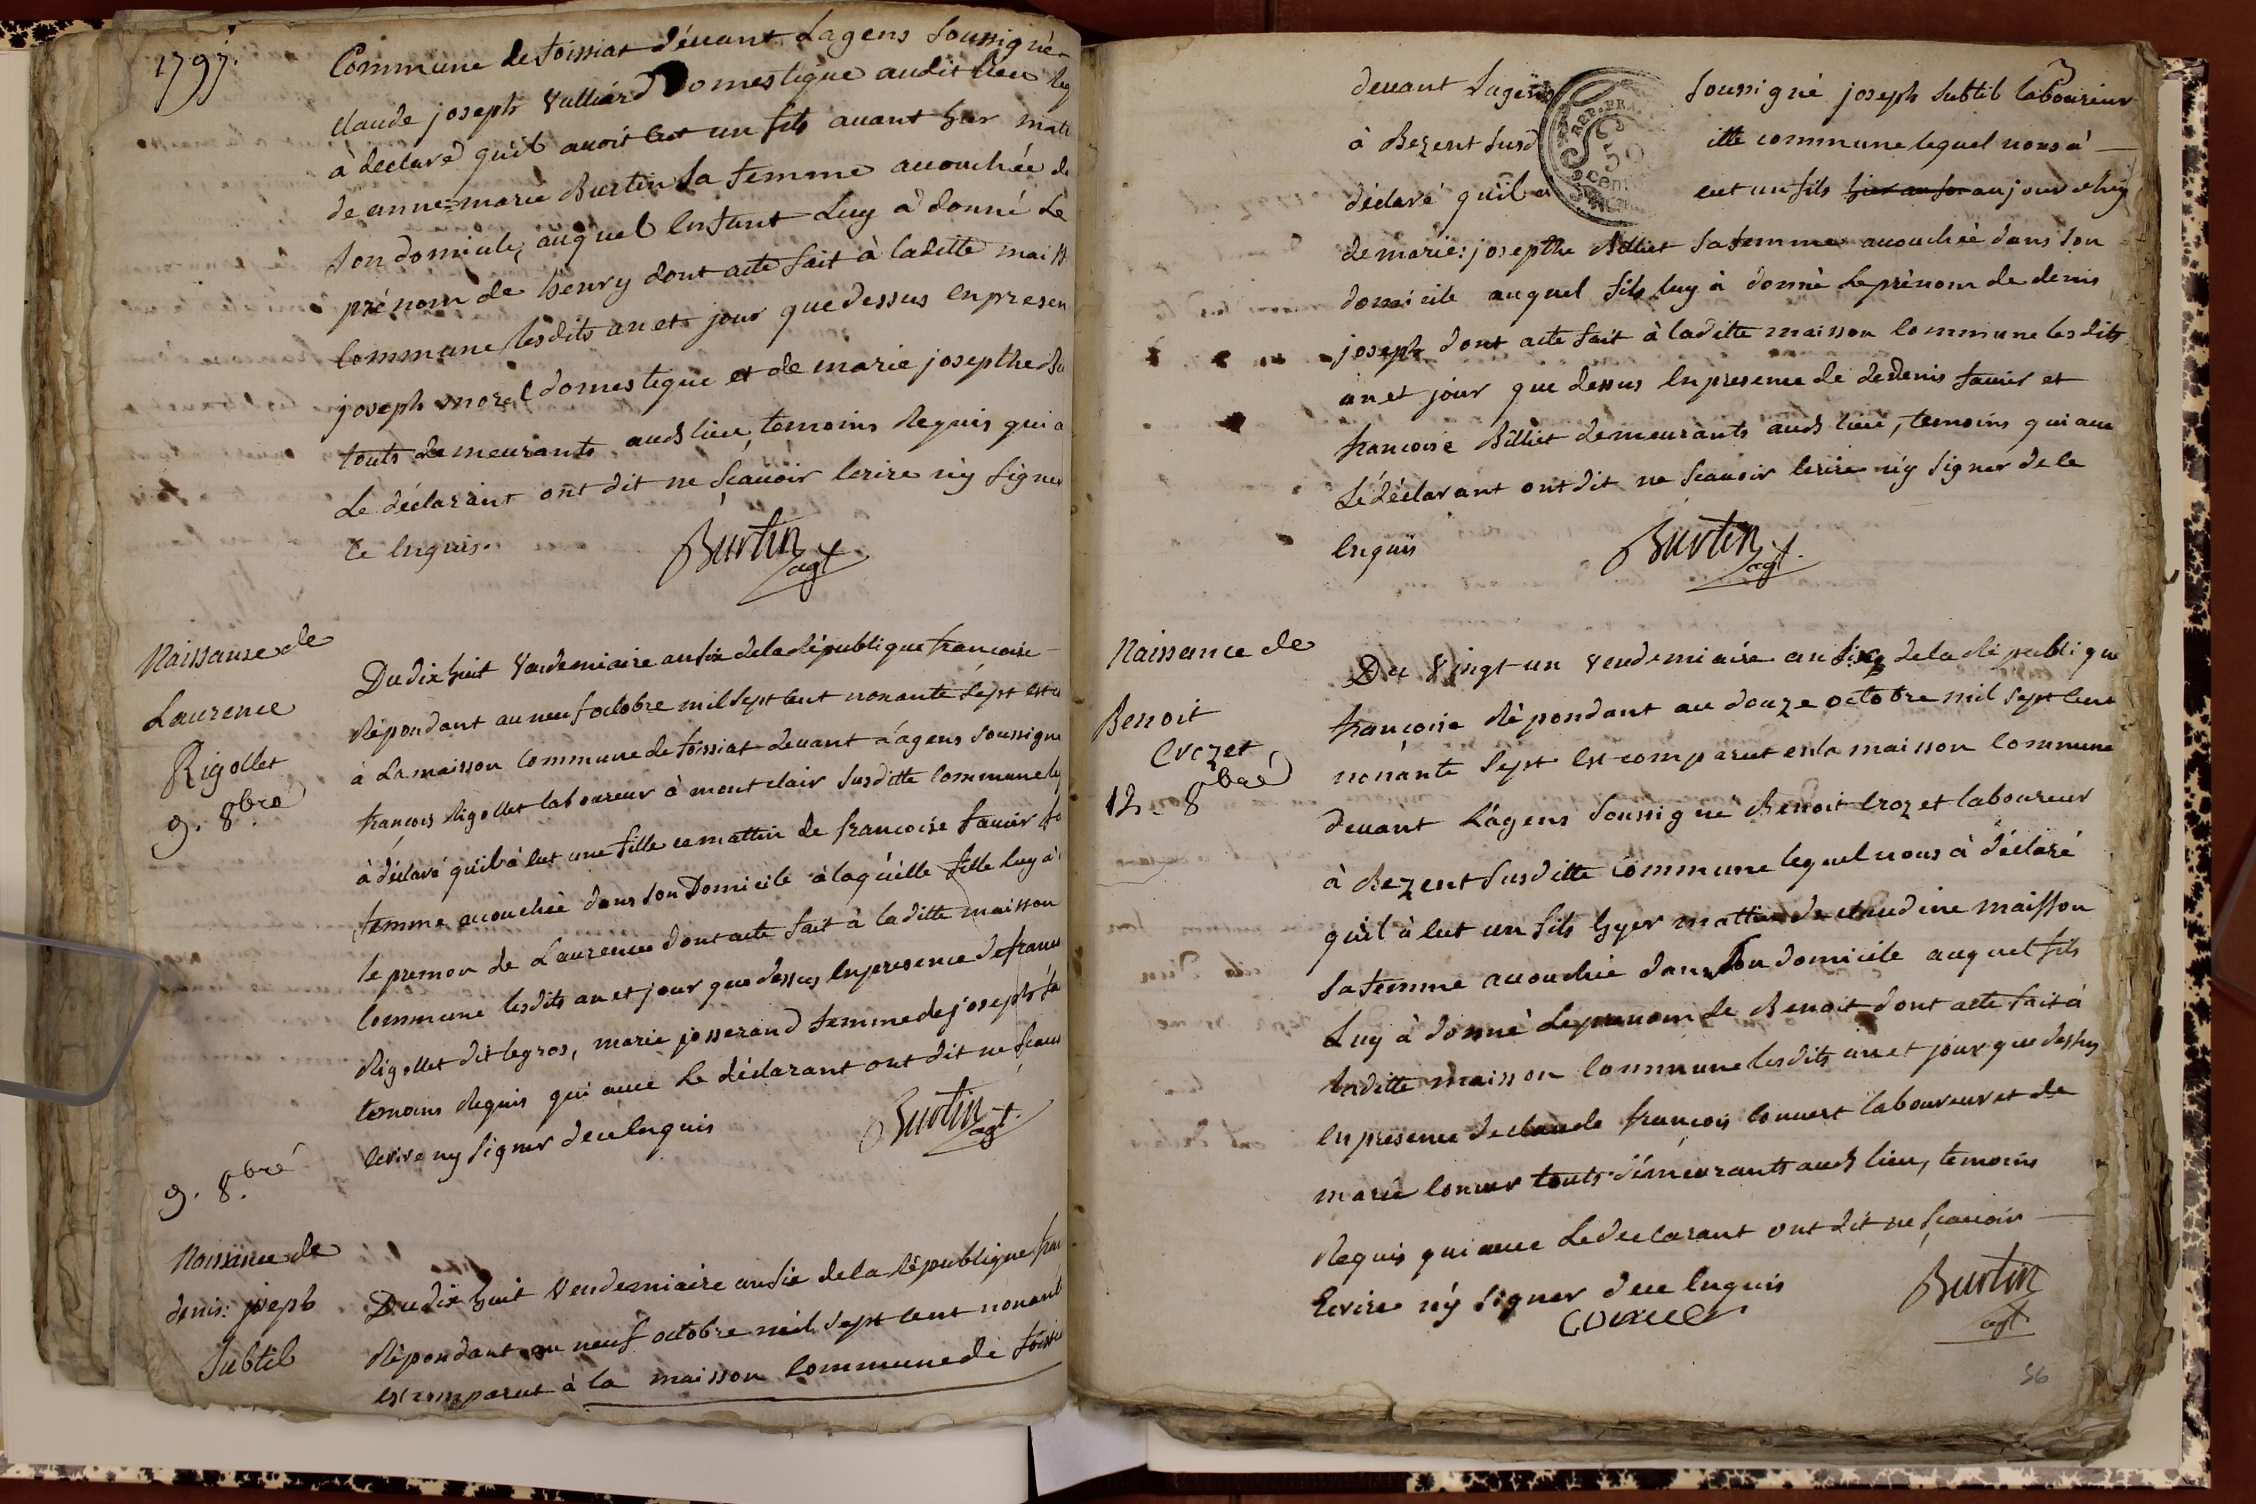 1797.
Commune de foissiat dévant Lagens Soussigné
claude joseph Vulliard Domestique audit lieu leq
à declaré quil avoit eut un fils avant hier mati
de anne-marie Burtin Sa femme acouchée d
Son domicile, auquel Enfant Luy à donné Le
prénom de henry dont acte fait à laditte maiss
Commune, lesdits an et jour que dessus En presen
joseph morel domestique et de marie josepthe
touts demeurants aud lieu, temoins Requis qui a
Le déclarant ont dit ne Sçavoir Ecrire n'y Signer
ce Enquis.
Burtin
agt
Naissance de
Laurence
Rigollet
9. 8bre
Du dix huit Vendemiaire an six de la République françoise
Répondant au neuf octobre mil sept cent nonante sept est c
à La maisson Commune de foissiat devant L'ágens Soussigné
françois Rigollet laboureur à montclair Susditte Commune leq
à déclaré quil à Eut une fille ce mattin de francoise favier sa
femme acouchée dans Son Domicile à laquelle fille luy à
le prenon de Laurence dont acte fait à laditte maisson
Commune lesdits an et jour que dessus En presence de franc
Rigollet dit legros, marie josserand femme de joseph
temoins Requis qui avec Le déclarant ont dit ne Scavo
Ecrire ny Signer de ce Enquis
Burtin
agt.
9. 8bre
Naissance de
denis: joseph
Subtil
Du dix huit Vendemiaire an six de la République fran
Répondant au neuf octobre mil sept cent nonant
est comparut à la maisson Commune de foissi
devant Lagens Soussigné joseph Subtil laboureur
à Bezent Susd itte commune lequel nous à
déclaré quil à eut un fils hier au soir aujourdhuy
de marie: josepthe Billiet Sa femme acouchée dans Son
domicile auquel fils luy à donné Le prénom de denis
joseph dont acte fait à laditte maisson Commune lesdits
an et jour que dessus En presence de de denis favier et
francoise Billiet demeurants aud lieu, temoins qui avec
Le déclarant ont dit ne Scavoir Ecrire n'y Signer de ce
Enquis
Burtin
agt.
Naissance de
Benoit
Crozet
12. 8bre
Du Vingt un Vendemiaire an Six de la République
françoise Répondant au douze octobre mil sept cent
nonante Sept Est comparut en la maisson Commune
devant L'ágens Soussigné Benoit Crozet laboureur
à Bezent Susditte Commune lequel nous à déclaré
quil à Eut un fils hyer mattin de claudine maisson
Sa femme acouchée dans Son domicile auquel fils
Luy à donné Le prenom de Benoit dont acte fait à
laditte maisson Commune lesdits an et jour que dessus
En presence de claude françois Convert laboureur et de
marie touts démeurants aud lieu, temoins
Requis qui avec Le declarant ont dit ne Scavoir
Ecrire n'y Signer de ce Enquis
Burtin
agt
56